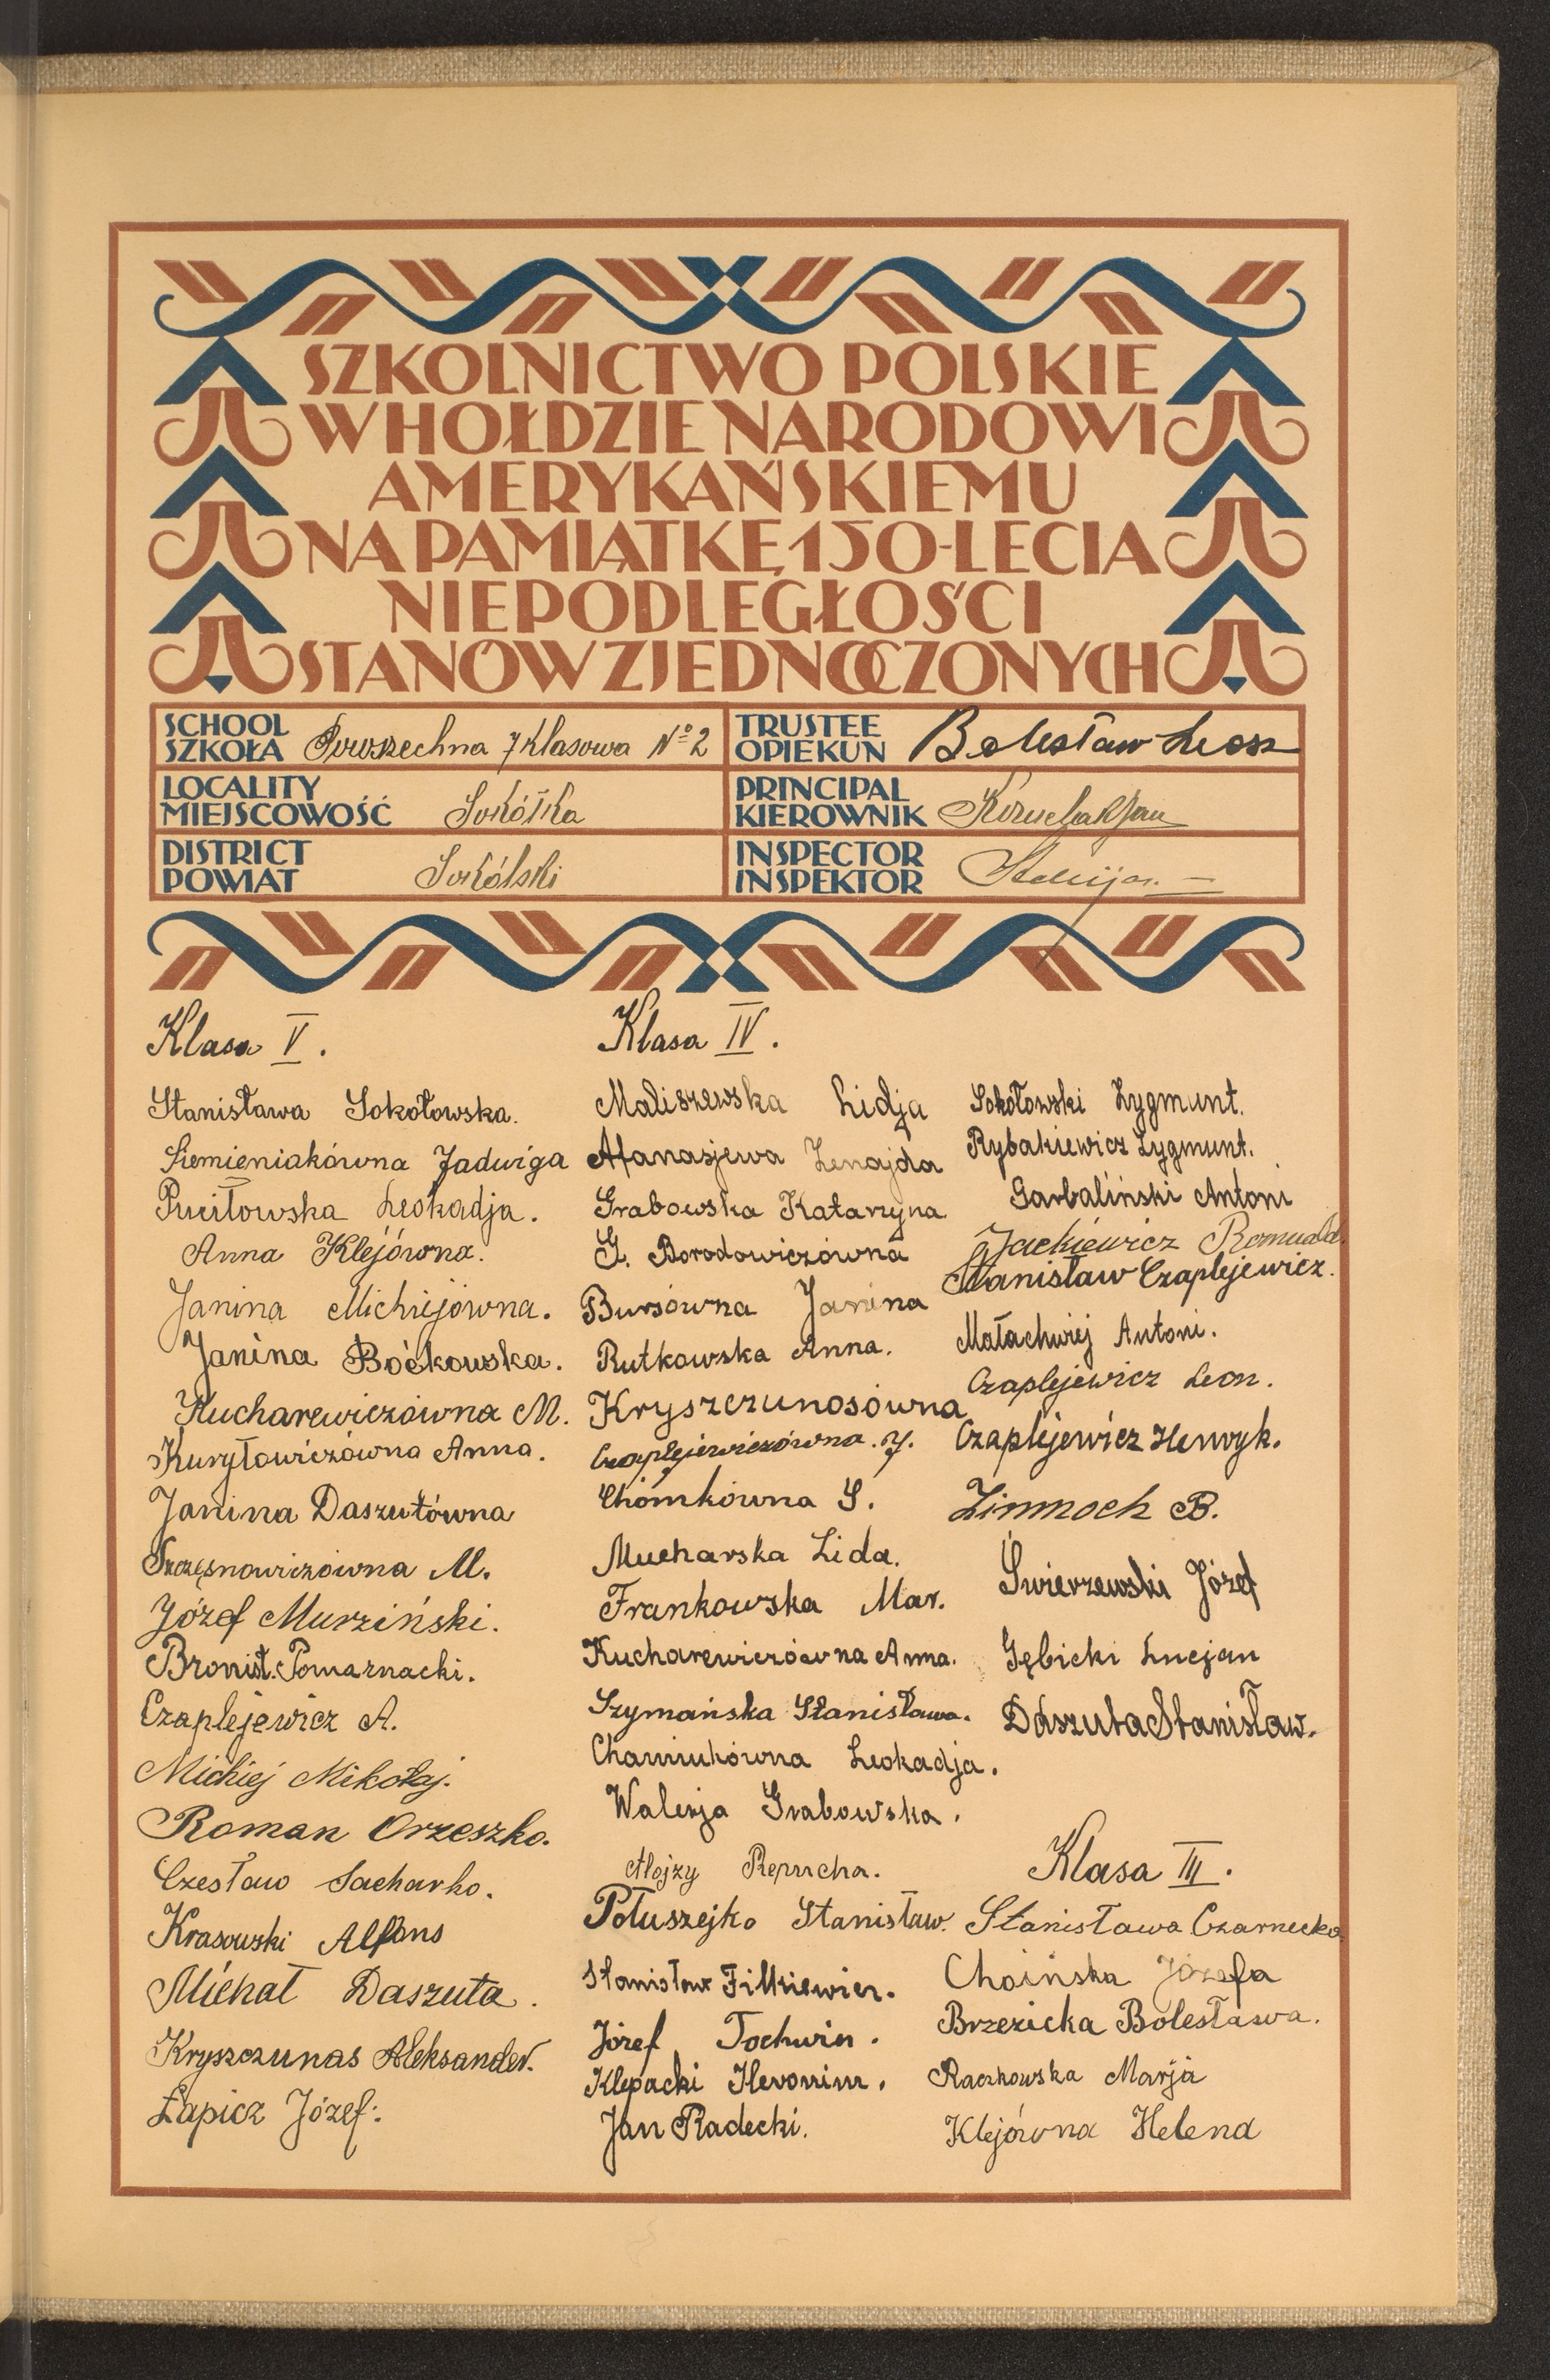 SZKOLNICTWO POLSKIE
W HOŁDZIE NARODOWI
AMERYKAŃSKIEMU
NA PAMIĄTKĘ 150-LECIA
NIEPODLEGŁOŚCI
STANÓW ZJEDNOCZONYCH
SCHOOL
SZKOŁA Powszechna 7 klasowa Nº 2
TRUSTEE
OPIEKUN Bolesław
LOCALITY
MIEJSCOWOŚĆ Sokółka
PRINCIPAL
KIEROWNIK Kozuchak Jan
DISTRICT
POWIAT Sokólski
INSPECTOR
INSPEKTOR
Klasa V.
Stanisława Sokołowska.
Siemieniakówna Jadwiga
Puciłowska Leokadja.
Anna Klejówna.
Janina Michiejówna.
Janina Boćkowska.
Kucharewiczówna M.
Kuryłowiczówna Anna.
Janina Daszutówna
Szczęsnowiczówna M.
Józef Murziński.
Bronisł. Pomarnacki.
Czaplejewicz A.
Michiej Mikołaj.
Roman Orzeszko.
Czesław Sacharko.
Krasowski Alfons
Michał Daszuta.
Kryszczunas Aleksander.
Łapicz Józef.
Klasa IV.
Maliszewska Lidja
Afanasjewa Zenajda
Grabowska Katarzyna
G. Borodowiczówna
Bursówna Janina
Rutkowska Anna.
Kryszczunosówna
Czaplejewiczówna. J.
Chomkówna S.
Mucharska Lida.
Frankowska Mar.
Kucharewiczówna Anna.
Szymańska Stanisława.
Chaniukówna Leokadja.
Walerja Grabowska.
Alojzy Repucha.
Połuszejko Stanisław.
Stanisław Filkiewicz.
Józef Tochwin.
Klepacki Heronim.
Jan Radecki.
Sokołowski Zygmunt.
Rybakiewicz Zygmunt.
Garbaliński Antoni
Jackiewicz Romuald.
Stanisław Czaplejewicz.
Małachwiej Antoni.
Czaplejewicz Leon.
Czaplejewicz Henryk.
Zimnoch B.
Świerzewski Józef
Gębicki Lucjan
Daszuta Stanisław.
Klasa III.
Stanisława Czarnecka
Choińska Józefa
Brzezicka Bolesława.
Raczkowska Marja
Klejówna Helena